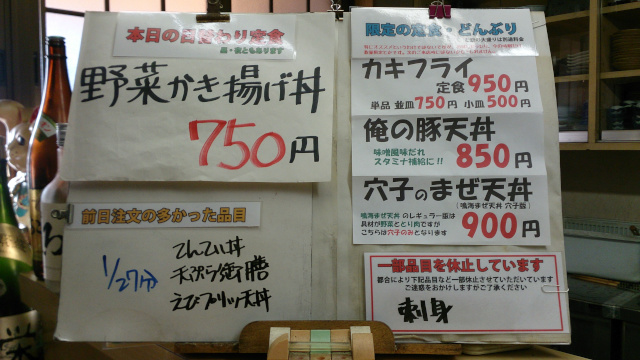 本日の日替わり定食
昼・夜ともあります
野菜かき揚げ丼
750円
前日注文の多かった品目
1/27分
てんてい丼
天ぷら衛膳
えびプリッツ天丼
限定の定食・どんぶり
カキフライ
定食 950円
単品 並皿 750円 小皿 500円
俺の豚天丼
味噌風味だれ
スタミナ補給に!!
850円
穴子のまぜ天丼
(鳴海まぜ天丼 穴子版)
鳴海まぜ天丼 のレギュラー版は
具材が野菜ととり肉ですが
こちらは穴子のみとなります
900円
一部品目を休止しています
都合により下記品目など一部休止させていただいています
ご迷惑をおかけしますがご了承ください
刺身